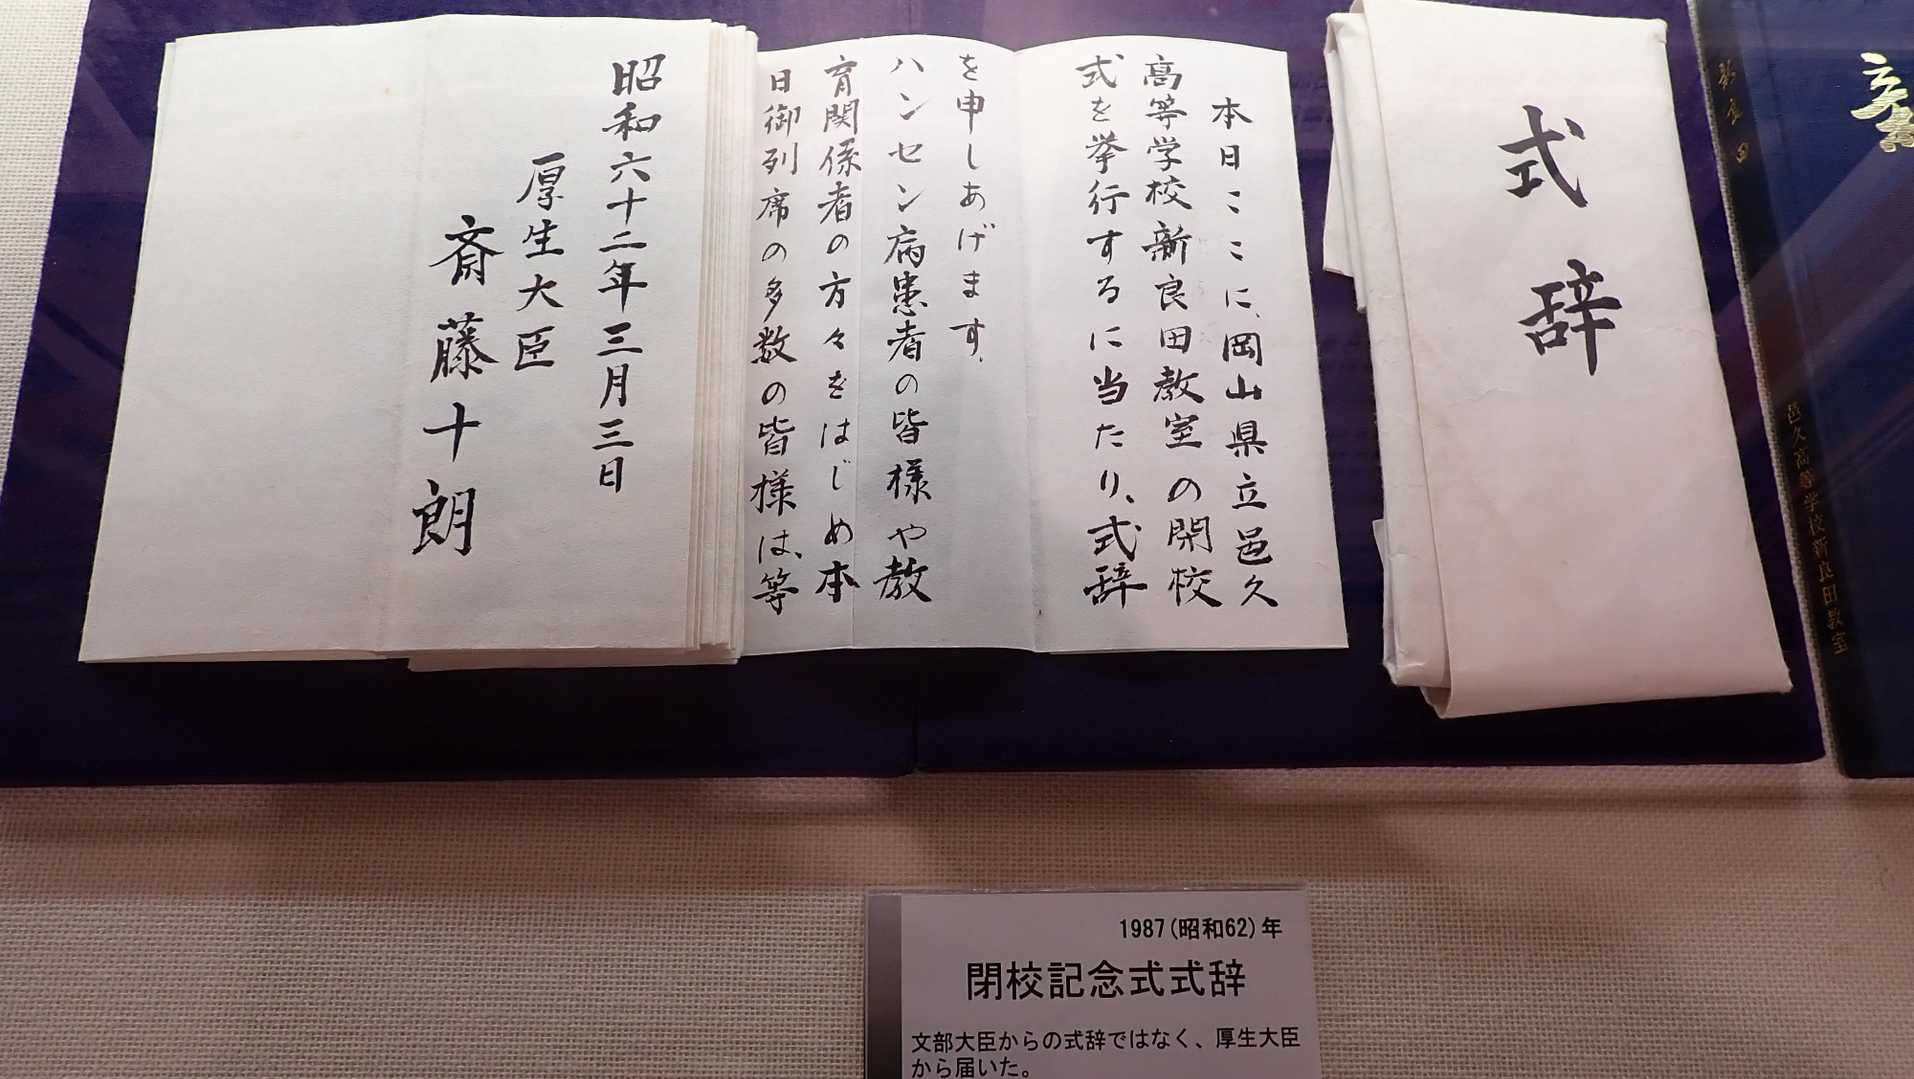 式辞
本日ここに、岡山県立邑久
高等学校新良田教室の閉校
式を挙行するに当たり、式辞
を申しあげます。
ハンセン病患者の皆様や教
育関係者の方々をはじめ本
日御列席の多数の皆様は、等
昭和六十二年三月三日
厚生大臣
斎藤十朗
邑久高等学校新良田教室
1987(昭和62)年
閉校記念式式辞
文部大臣からの式辞ではなく、厚生大臣
から届いた。